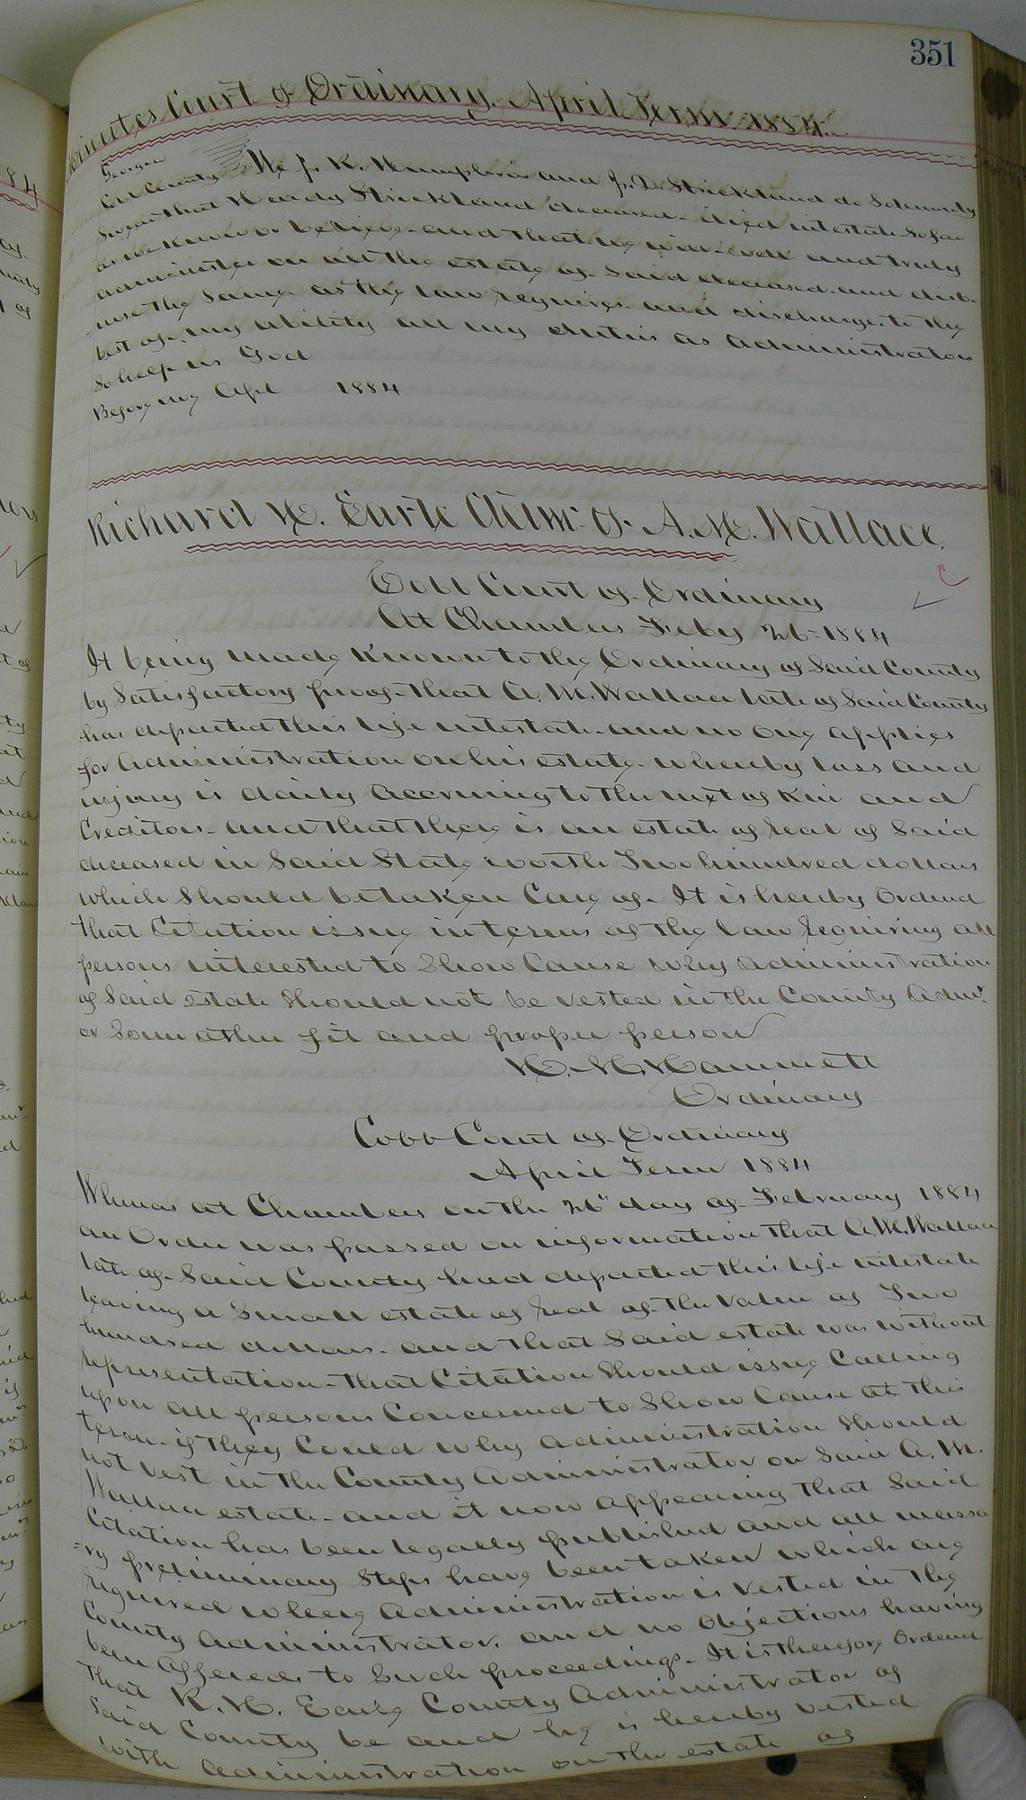 351
Minutes Court of Ordinary. April Term 1884.
Georgia
Cobb County We J. R. Humphries and J. D. Strickland do Solemnly
Swear that Hardy Strickland deceased died intestate So far
as we know or believe and that we will well and truly
administer on all the estate of Said deceased and disb-
urse the Same as the law requires and discharge to the
best of my ability all my duties as administrators
So help us God
Before me Apl 1884
Richard H. Earle Admr. of A. M. Wallace
Cobb Court of Ordinary
At Chambers Feby 26-1884
It being made Known to the Ordinary of Said County
by Satisfactory proof that A. M. Wallace late of Said County
has departed this life intestate and no one applies
for administration on his estate whereby loss and
injury is daily accruing to the next of Kin and
Creditors and that there is an estate of real of Said
deceased in Said State worth Two hundred dollars
which Should be taken Care of. It is hereby Ordered
that Citation issue in terms of the law requiring all
persons interested to Show Cause why administration
of Said estate Should not be vested in the County Admr.
or Some other fit and proper person
H. M. Hammett
Ordinary
Cobb Court of Ordinary
April Term 1884
Whereas at Chambers on the 26" day of February 1884
an Order was passed on information that A. M. Wallace
late of Said County had departed this life intestate
leaving a Small estate of real of the Value of Two
hundred dollars and that Said estate was without
representation that Citation Should issue Calling
upon all persons Concerned to Show Cause at this
term if they Could why administration Should
not vest in the County Administrator on Said A. M.
Wallace estate and it now appearing that Said
Citation has been legally published and all necessa
-ry preliminary Steps have been taken which are
required where administration is vested in the
County Administrator. and no Objections having
been offered to Such proceedings. It is therefore Ordered
that R. H. Earle County Administrator of
Said County be and he is hereby vested
with administration on the estate of